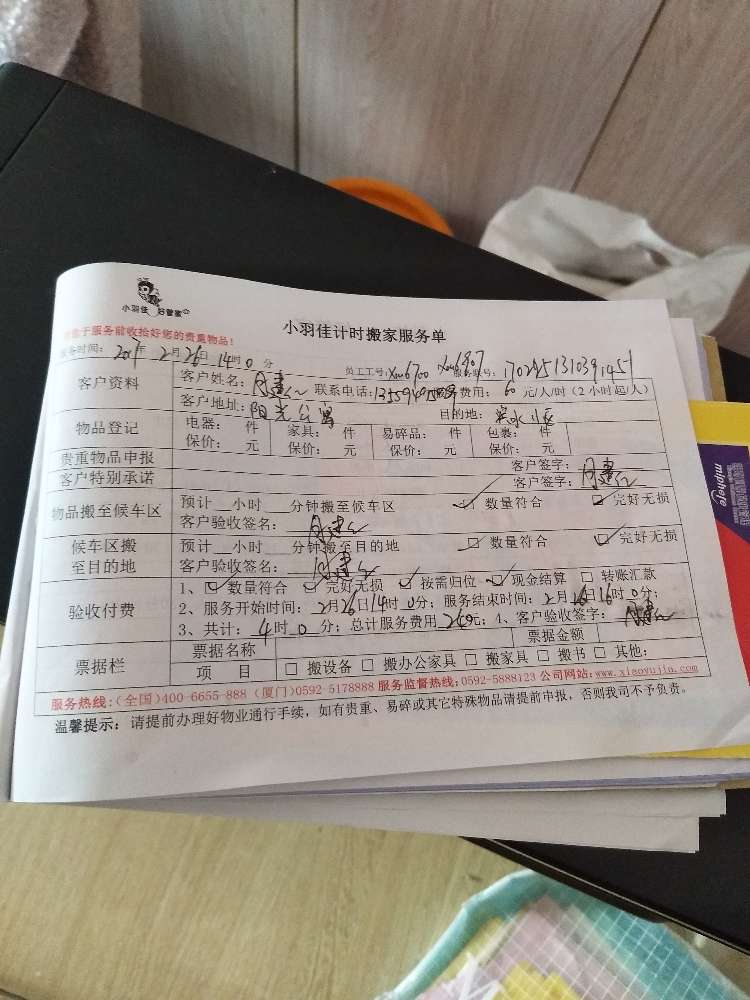 小羽佳 好管家
小羽佳计时搬家服务单
于服务前收拾好您的贵重物品!
服务时间: 2017年 2月26日 14时0分 员工工号: xm6700 xm6907 服务账号: 1702951310391451
客户资料 客户姓名: 联系电话: 费用: 60 元/人/时(2小时起/人)
客户地址: 阳光公寓 目的地:
物品登记 电器: 件 家具: 件 易碎品: 件 包裹: 件
保价: 元 保价: 元 保价: 元 保价: 元
贵重物品申报 客户签字:
客户特别承诺 客户签字:
物品搬至候车区 预计__小时__分钟搬至候车区 ☑ 数量符合 ☑ 完好无损
客户验收签名:
候车区搬至目的地 预计__小时__分钟搬至目的地 ☑ 数量符合 ☑ 完好无损
客户验收签名:
验收付费 1、☑ 数量符合 ☑ 完好无损 ☑ 按需归位 ☑ 现金结算 □ 转账汇款
2、服务开始时间: 2月26日14时0分; 服务结束时间: 2月26日16时0分;
3、共计: 4时0分; 总计服务费用240元; 4、客户验收签字:
票据栏 票据名称 票据金额
项 目 □ 搬设备 □ 搬办公家具 □ 搬家具 □ 搬书 □ 其他:
服务热线:(全国)400-6655-888 (厦门)0592-5178888 服务监督热线:0592-5888123 公司网站:www.xiaoyujia.com
温馨提示: 请提前办理好物业通行手续,如有贵重、易碎或其它特殊物品请提前申报,否则我司不予负责。